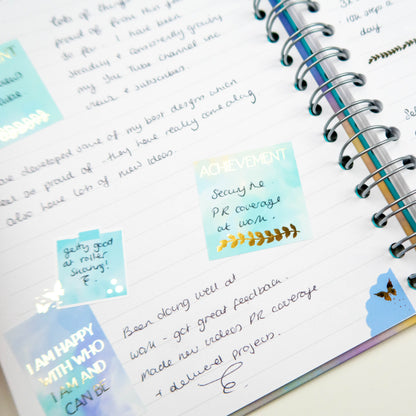 lots of things
proud of from this
so far. I have been
steadily & consistently growing
my You Tube channel inc
views & subscribers.
views
are developed some of my best designs which
so proud of - they have really come along
also have lots of new ideas.
10k steps a
day
ACHIEVEMENT
PR coverage
at work.
getting good
at roller
skating!
I AM HAPPY
WITH WHO
I AM AND
CAN BE
Been doing well at
work - got great feedback.
made new videos PR coverage
+ delivered projects.